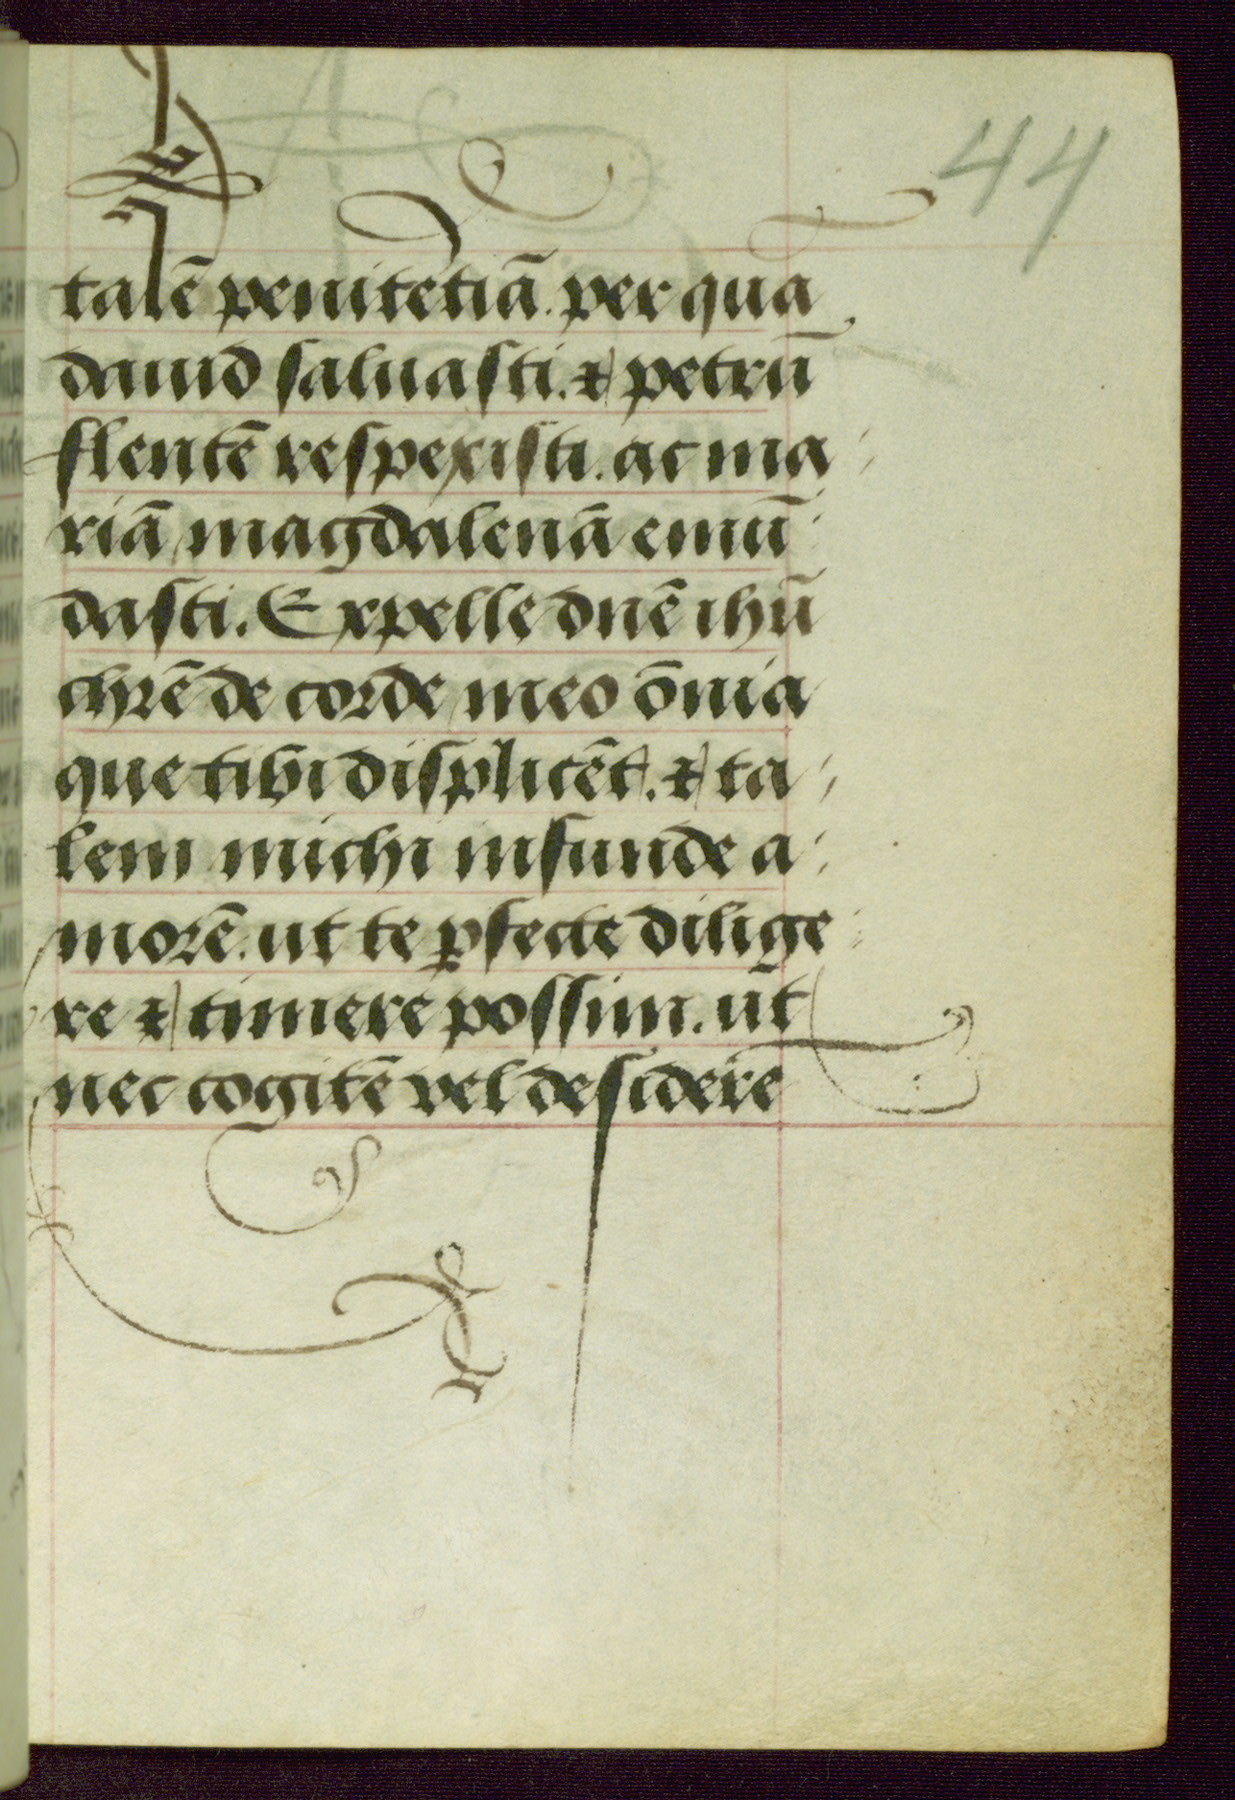 44
talē penitētiā. per qua
dauid saluasti. & petrū
flentē respexisti. ac ma
riā magdalenā emū
dasti. Expelle dnē ihū
chrē de corde meo ōnia
que tibi displicēt. & ta
lem michi infunde a
morē. ut te ꝑfecte dilige
re & timere possim. ut
nec cogitē vel desidere